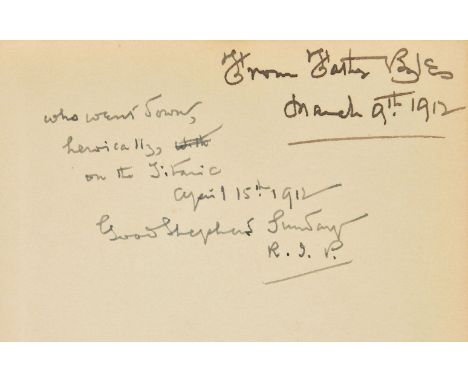 From Father Byles
March 9th. 1912
who went down,
heroically, with
on the Titanic
April 15th, 1912
Good Shepherd Sunday
R. I. P.